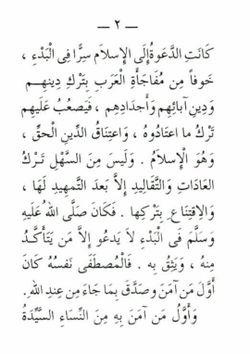 — ٢ —
كَانَتِ الدَّعْوَةُ إِلَى الْإِسْلَامِ سِرًّا فِى الْبَدْءِ ،
خَوْفاً مِن مُفَاجَأَةِ الْعَرَبِ بِتَرْكِ دِينِهِم
وَدِينِ آبَائِهِم وَأَجدَادِهِم ، فَيَصْعُبُ عَلَيهِم
تَرْكُ مَا اعتَادُوهُ ، وَاعتِنَاقُ الدِّينِ الْحَقِّ ،
وَهُوَ الْإِسْلَامُ . وَلَيسَ مِنَ السَّهْلِ تَرْكُ
العَادَاتِ وَالتَّقَالِيدِ إِلاَّ بَعدَ التَّمهِيدِ لَهَا ،
وَالِاقتِنَاعِ بِتَركِهَا . فَكَانَ صَلَّى اللهُ عَلَيهِ
وَسَلَّمَ فِى الْبَدْءِ لَا يَدعُو إِلاَّ مَن يَتَأَكَّدُ
مِنهُ ، وَيَثِقُ بِهِ . فَالْمُصطَفَى نَفسُهُ كَانَ
أَوَّلَ مَن آمَنَ وَصَدَّقَ بِمَا جَاءَ مِن عِندِ اللهِ .
وَأَوَّلُ مَن آمَنَ بِهِ مِنَ النِّسَاءِ السَّيِّدَةُ